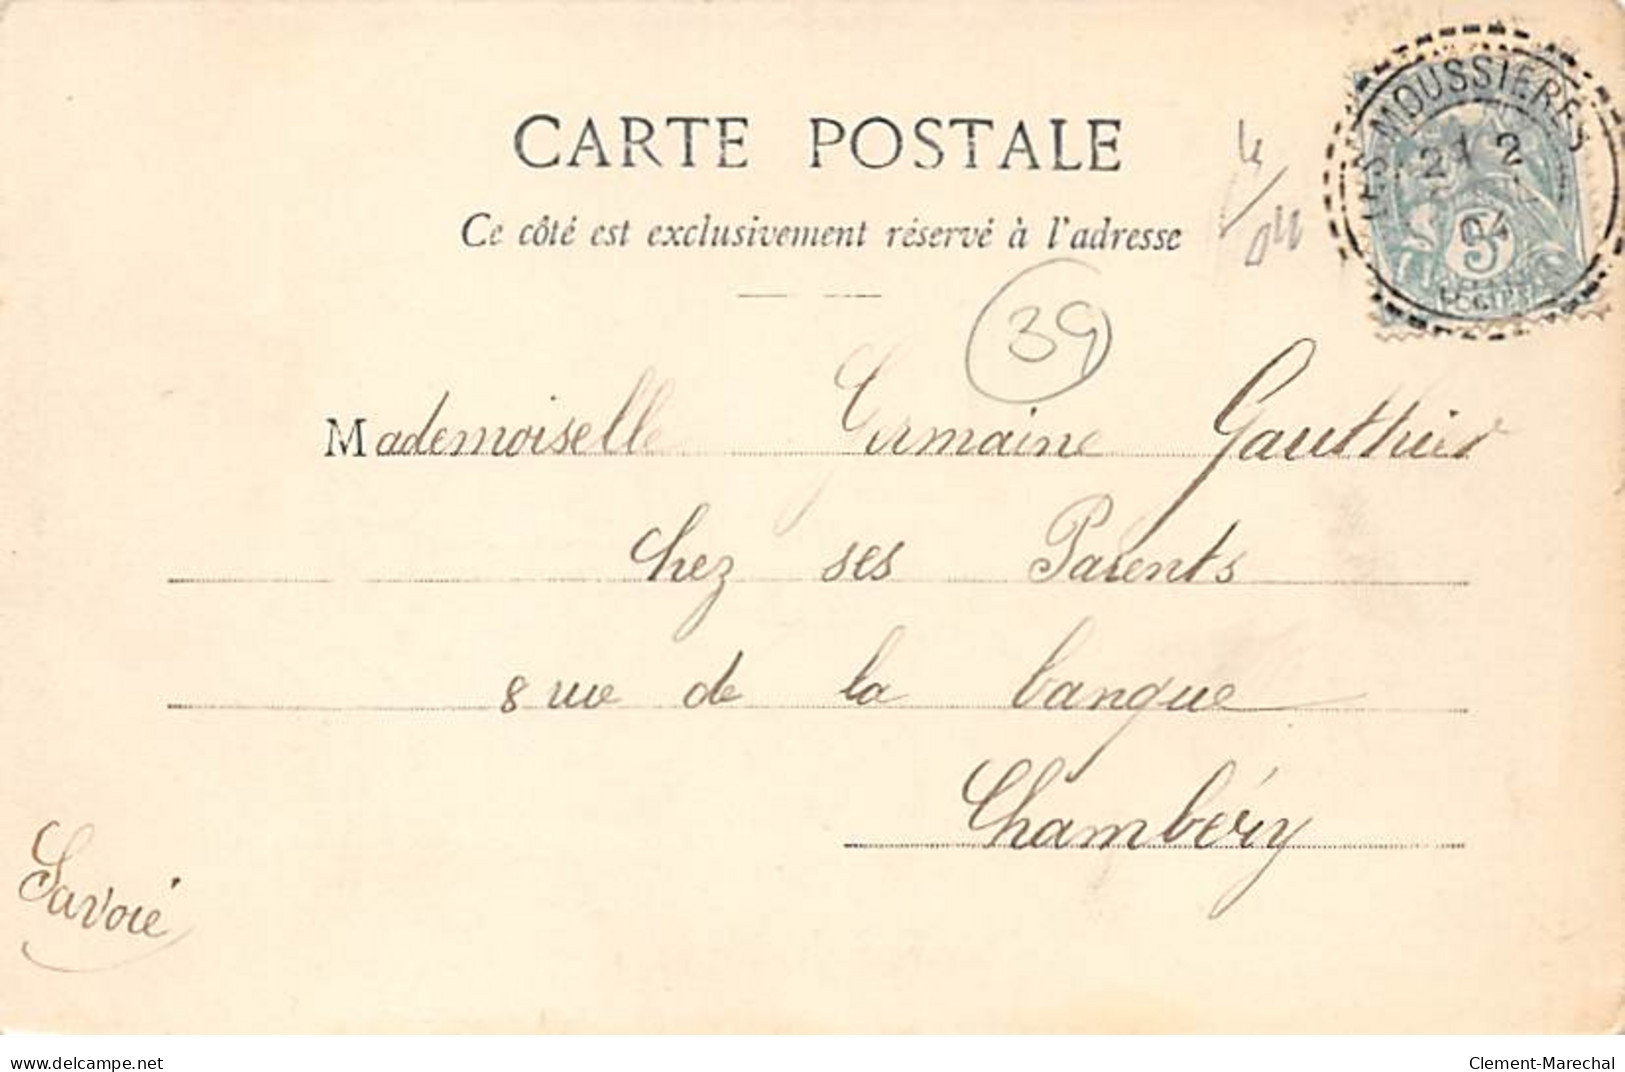 CARTE POSTALE
Ce côté est exclusivement réservé à l'adresse
LES MOUSSIERES
2
04
5
39
04
Mademoiselle Germaine Gauthier
chez ses Parents
8 rue de la banque
Chambéry
Savoie
delcampe.net
Clement-Marechal